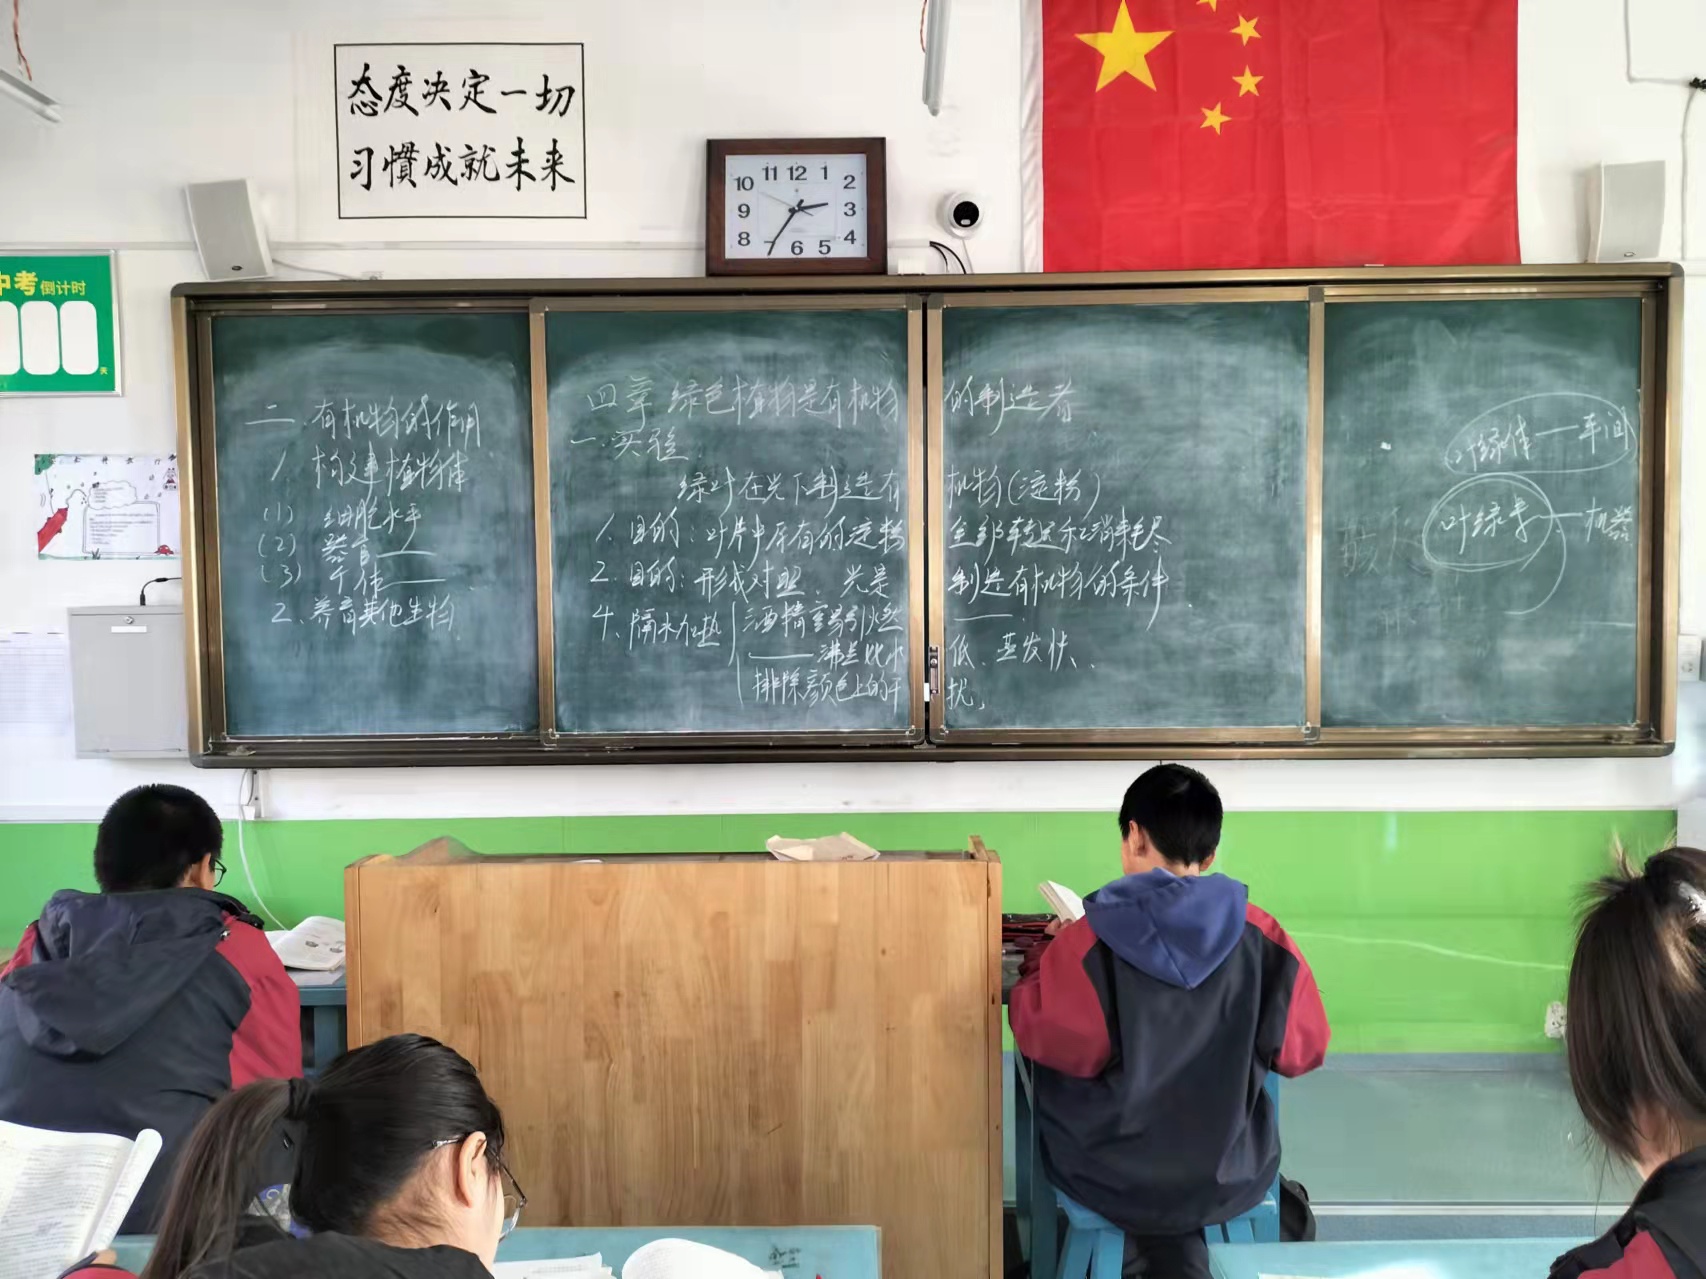 态度决定一切
习慣成就未来
中考倒计时
天
11 12 1
10 2
9 3
8 4
7 6 5
二.有机物的作用
1. 构建植物体
(1) 细胞水平
(2) 器官——
(3) 个体——
2. 养育其他生物
四章 绿色植物是有机物的制造者
一.实验:
绿叶在光下制造有机物(淀粉)
1. 目的:叶片中原有的淀粉全部转运和消耗尽
2. 目的:形成对照、光是制造有机物的条件
4. 隔水加热 酒精易引燃
——沸点比水低、蒸发快、
排除颜色上的干扰,
叶绿体——车间
叶绿素——机器